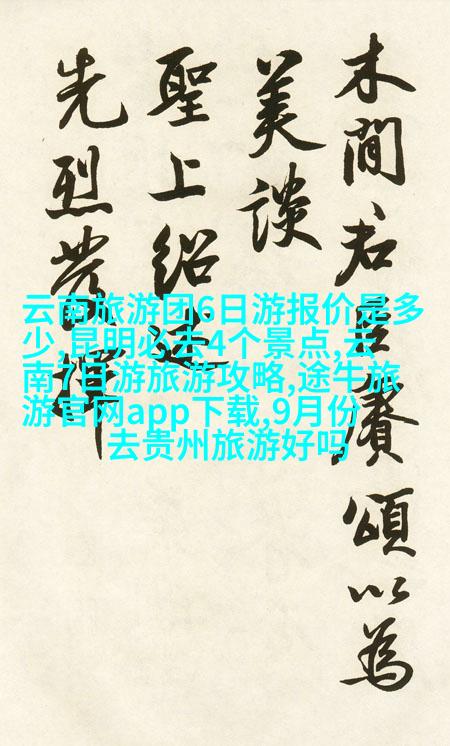 木間君臣賡頌以為
美談
聖上紹述
先烈
云南旅游团6日游报价是多
少,昆明必去4个景点,云
南7日游旅游攻略,途牛旅
游官网app下载,9月份
去贵州旅游好吗